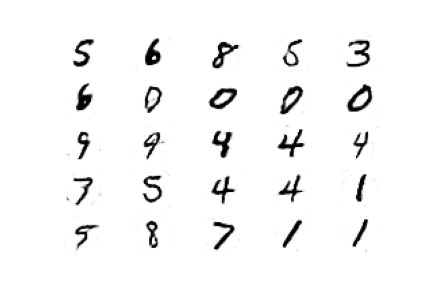 5 6 8 5 3
6 0 0 0 0
9 9 4 4 4
7 5 4 4 1
5 8 7 1 1